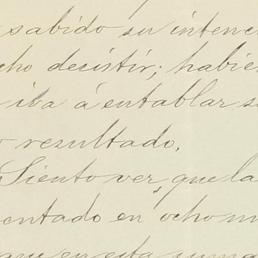 sabido su intenc
cho decistir; habié
iba á entablar s
resultado.
Siento ver, que la
entado en ocho m
que en esta suma